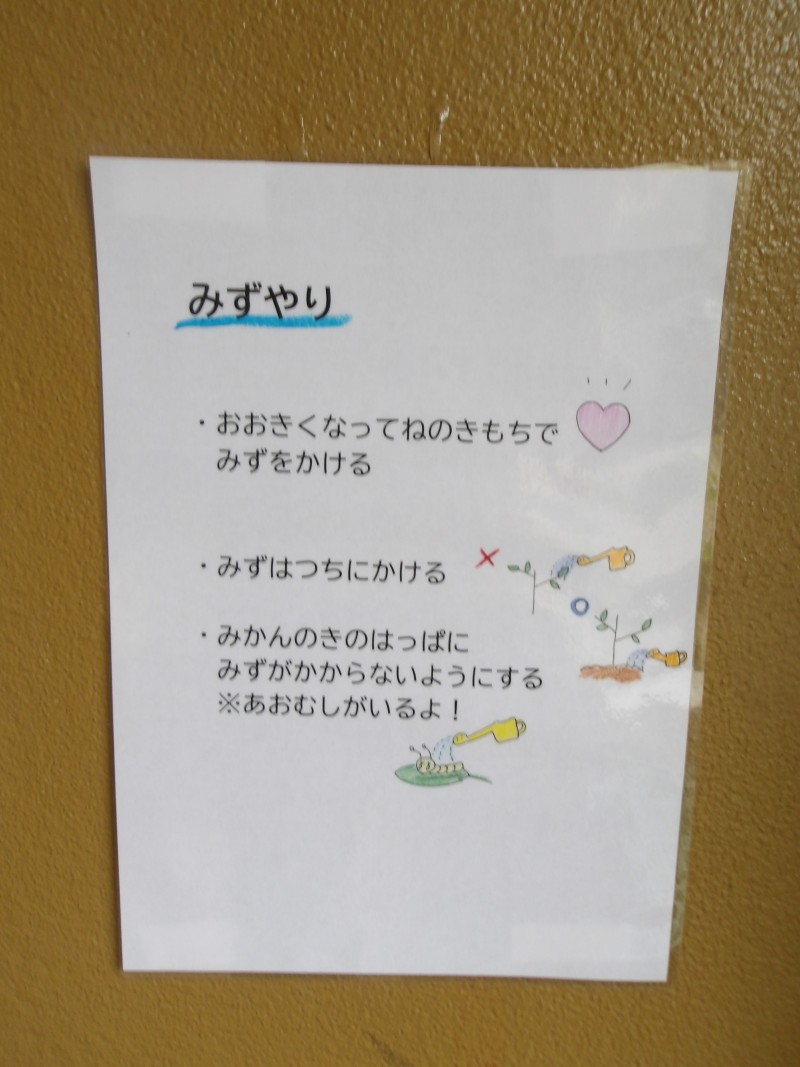 みずやり
・おおきくなってねのきもちで
みずをかける
・みずはつちにかける
・みかんのきのはっぱに
みずがかからないようにする
※あおむしがいるよ！